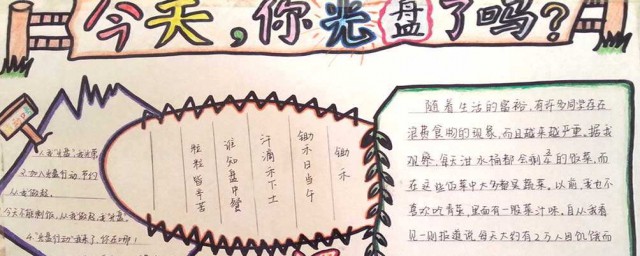 今天,你光盘了吗?
1.从我"光盘",
2.加入光盘行动,节约
从我做起。
3.今天不能剩饭,从我做起,我"光盘"。
4."光盘行动"我来了,你在哪!
锄禾
锄禾日当午
汗滴禾下土
谁知盘中餐
粒粒皆辛苦
随着生活的富裕,有许多同学存在
浪费食物的现象,而且越来越严重,据我
观察,每天泔水桶都会剩的饭菜,而
在这些饭菜中大多都是蔬菜。以前,我也不
喜欢吃青菜,里面有一股菜汁味,自从我看
见一则报道说每天大约有2万人因饥饿而